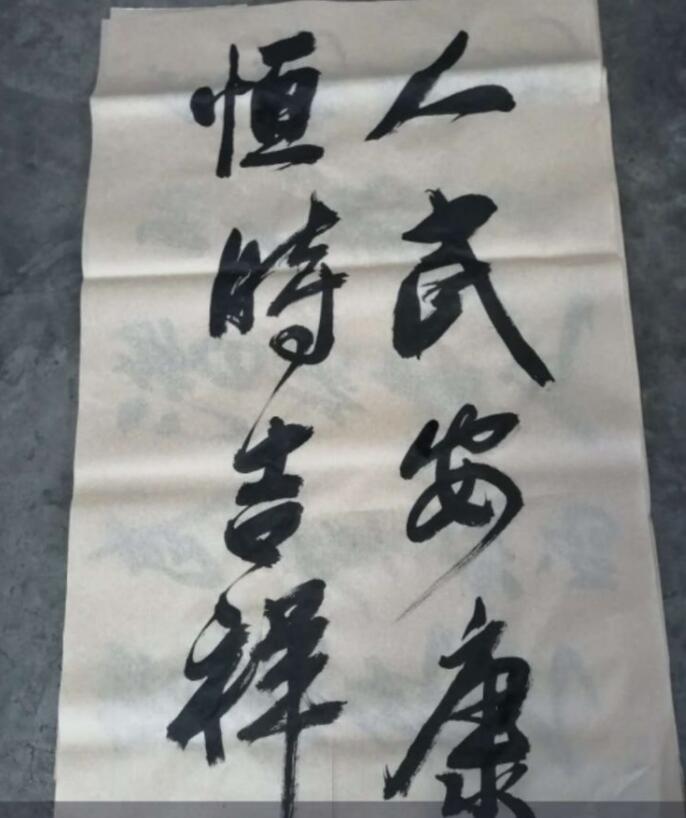 人民安康
恒時吉祥